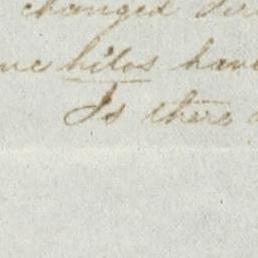 changed
hilos have
Is there